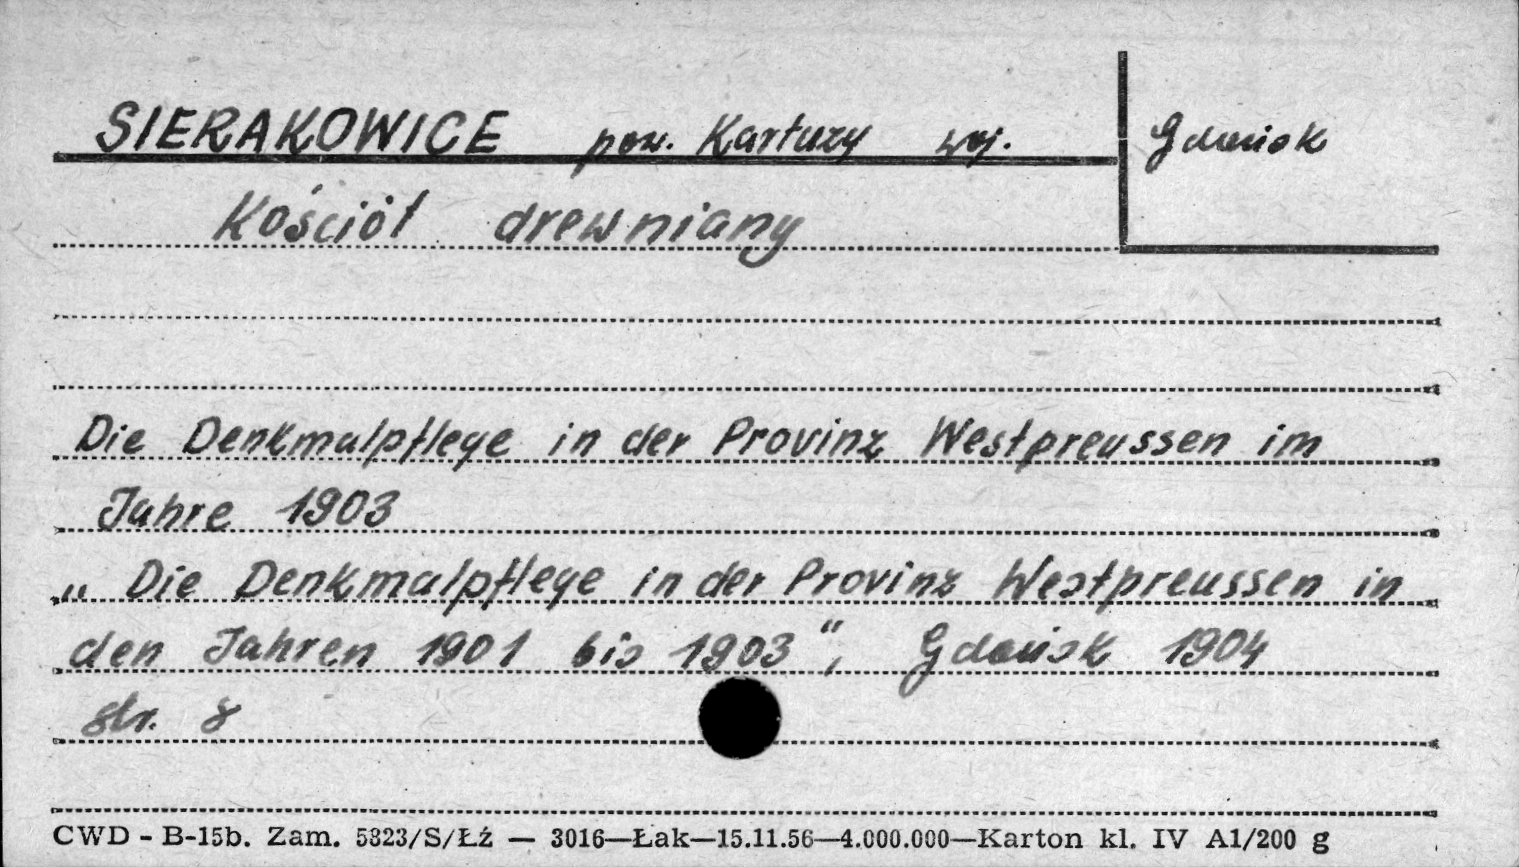 SIERAKOWICE pow. Kartuzy woj. Gdańsk
Kościół drewniany
Die Denkmalpflege in der Provinz Westpreussen im
Jahre 1903
„Die Denkmalpflege in der Provinz Westpreussen in
den Jahren 1901 bis 1903", Gdańsk 1904
str. 8
CWD - B-15b. Zam. 5323/S/Łź — 3016—Łak—15.11.56—4.000.000—Karton kl. IV A1/200 g